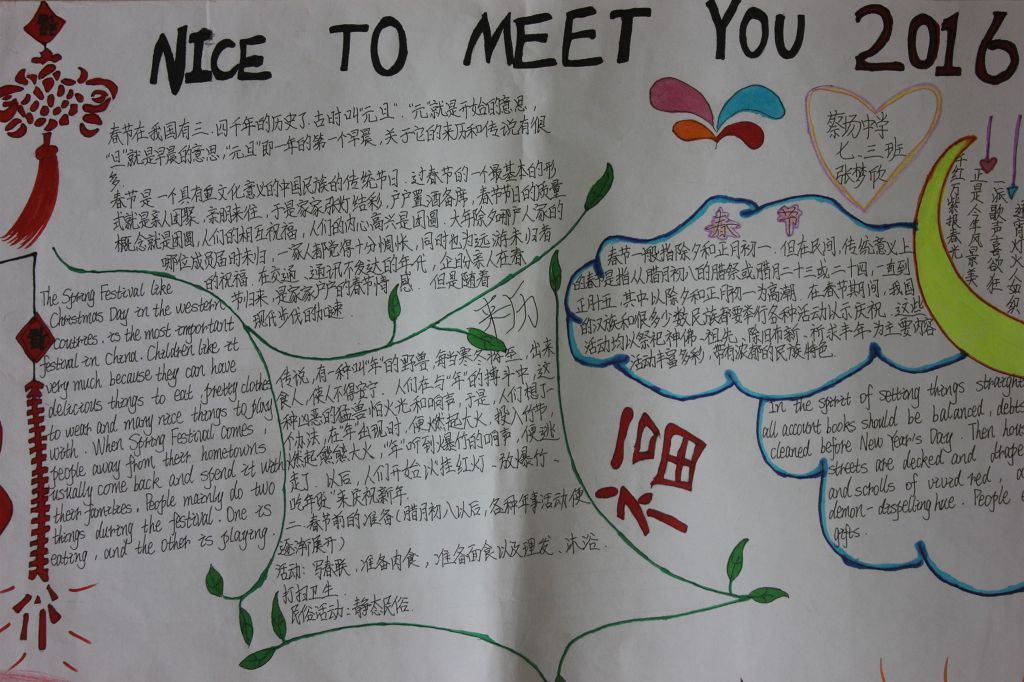 NICE TO MEET YOU 2016
春节在我国有三、四个年的历史了.古时叫"元旦"."元"就是开始的意思,
"旦"就是早晨的意思,"元旦"即一年的第一个早晨,关于它的来历和传说有很
多.
春节是一个具有重文化意义的中国民族的传统节日.过春节的一个最基本的形
式就是亲人团聚,亲朋来往,于是家家张灯结彩,户户置酒备席,春节节日的质量
概念就是团圆,人们的相互祝福,人们的内心高兴是团圆,大年除夕哪户人家的
哪位成员届时未归,一家人都觉得十分惆怅,同时也为远游未归者
的祝福.在交通、通讯不发达的年代,企盼亲人在春
节归来,是家家户户的春节情感.但是随着
现代步伐的加速.
The Spring Festival like
Christmas Day in the western
countries. is the most important
festival in China. Children like it
very much because they can have
delicious things to eat, pretty clothes
to wear and many nice things to play
with. When Spring Festival comes,
people away from their hometowns
usually come back and spend it with
their families, People mainly do two
things during the festival. One is
eating, and the other is playing.
传说,有一种叫"年"的野兽,每当寒冬将至,出来
食人,使人不得安宁.人们在与"年"的搏斗中,这
种凶恶的猛兽怕火光和响声,于是,人们想了一
个办法,在"年"出现时,便燃起大火,投入竹节,
燃起熊熊大火,"年"听到爆竹的响声,便逃
走了.以后,人们开始以挂红灯、放爆竹、
吃年货"来庆祝新年.
二、春节前的准备(腊月初八以后,各种年事活动便
逐渐展开)
活动:写春联,准备肉食,准备面食以及理发、沐浴、
打扫卫生.
民俗活动:静态民俗.
蔡场中学
七、三班
张梦欣
春 节
春节一般指除夕和正月初一.但在民间,传统意义上
的春节是指从腊月初八的腊祭或腊月二十三或二十四,一直到
正月十五,其中以除夕和正月初一为高潮.在春节期间,我国
的汉族和很多少数民族都要举行各种活动以示庆祝.这些
活动均以祭祀神佛、祖先、除旧布新、祈求丰年为主要内容
活动丰富多彩,带有浓郁的民族特色.
千红万紫报春光
正是今年风景美
一派歌声喜欲狂
福
In the spirit of setting things straight
all account books should be balanced, debts
cleaned before New Year's Day. Then hou
streets are decked and drape
and scrolls of vivid red, a
demon-dispelling hue. People e
gifts.